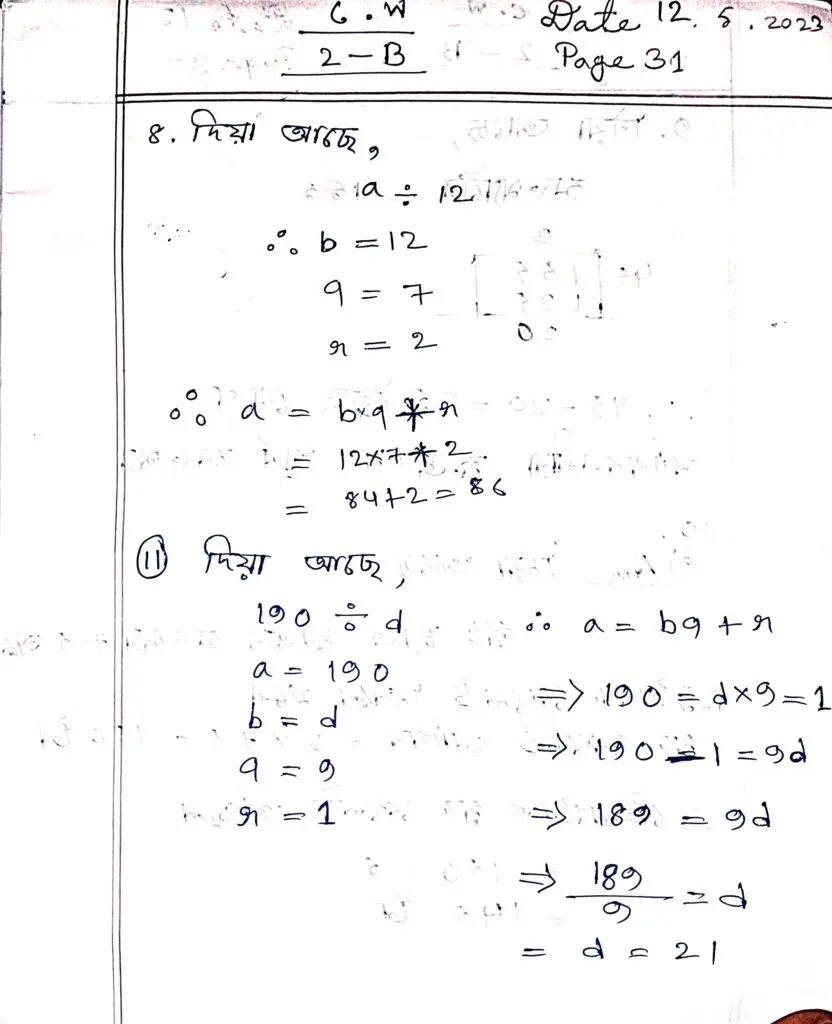 C.W
2-B
Date 12.5.2023
Page 31
8. দিয়া আছে,
a ÷ 12
∴ b = 12
q = 7
r = 2
∴ a = b×q + r
= 12×7+2
= 84+2=86
(11) দিয়া আছে,
190 ÷ d
a = 190
b = d
q = 9
r = 1
∴ a = bq + r
=> 190 = d×9=1
=> 190 - 1 = 9d
=> 189 = 9d
=> 189/9 = d
= d = 21